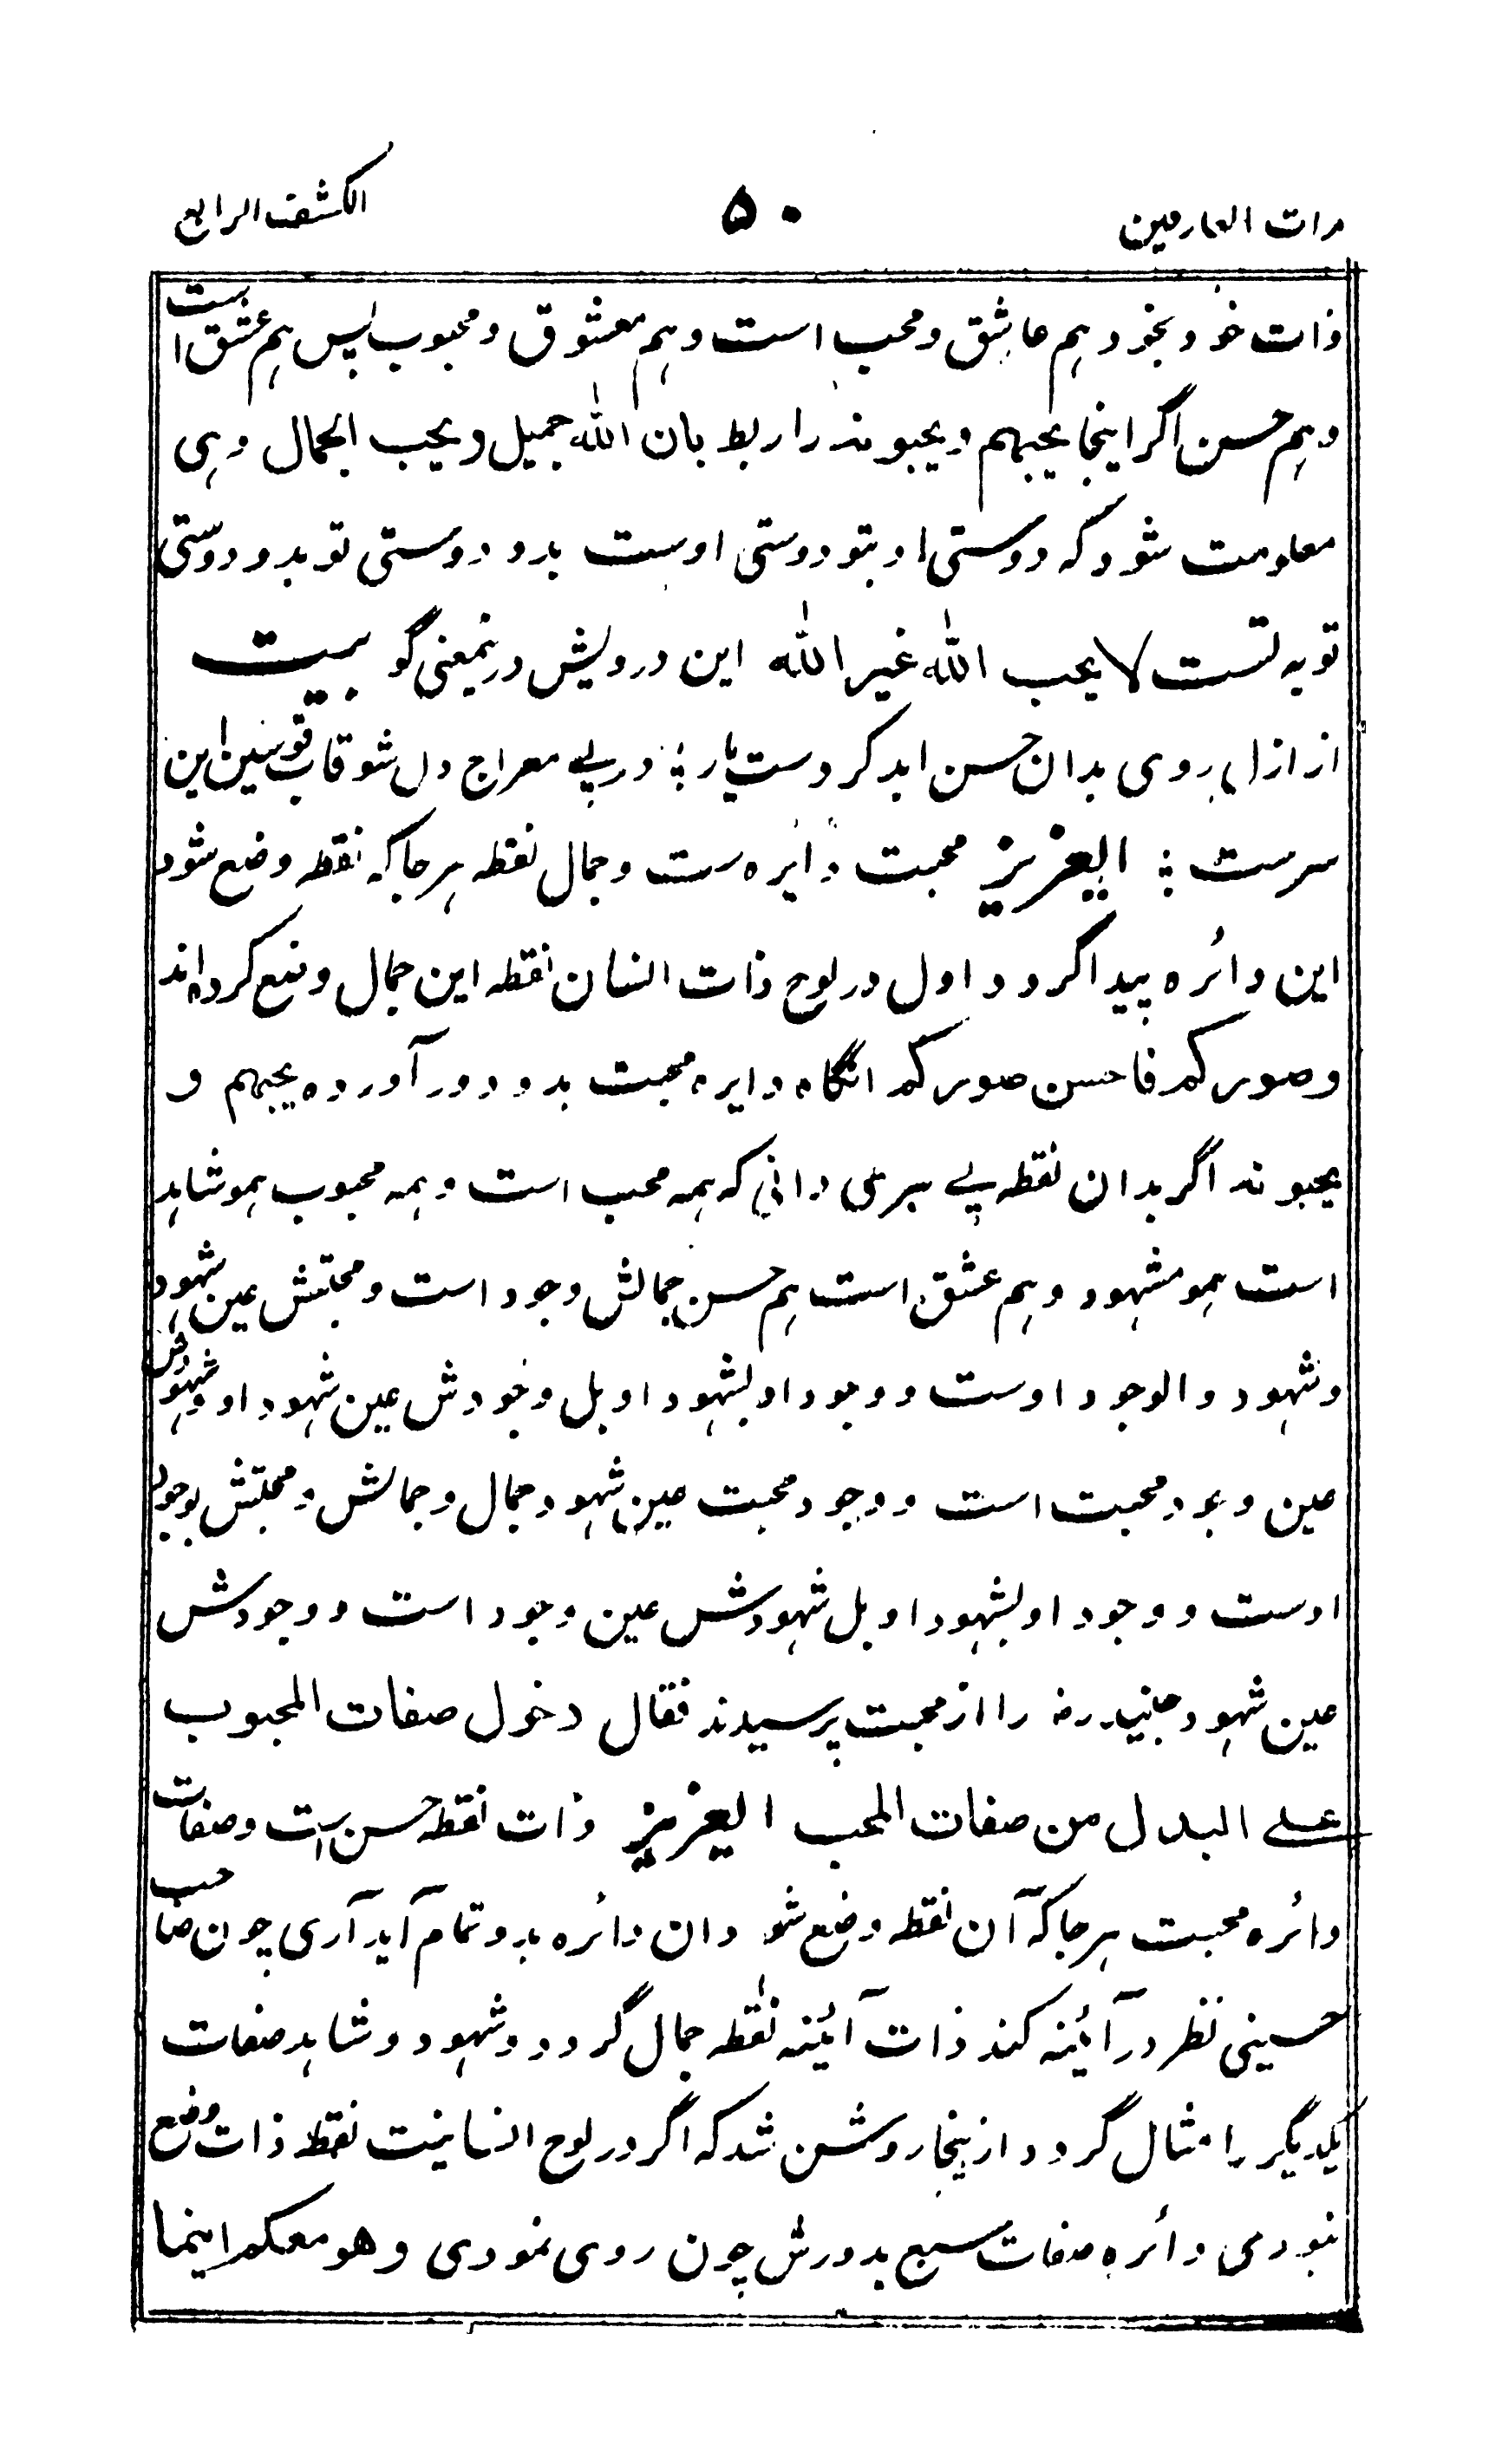 مرات العارفین ۵۰ الکشف الرابع
ذات خود بخود ہم عاشق و محب است و ہم معشوق و محبوب پس ہم عشق است
و ہم حسن اگر اینجا یحبہم و یحبونہ را ربط بان اللہ جمیل و یحب الجمال دہی
معلومت شود کہ دوستی او بتو دوستی اوست بدو و دوستی تو بدو دوستی
تو بہ تست لا یحب اللہ غیر اللہ این درویش درینمعنی گو بیت
از ازل روی بدان حسن ابد کردست یار ؛ در پے معراج دل شو قاب قوسین این
سرست ؛ ایعزیز محبت دایرہ ست و جمال نقطہ ہر جا کہ نقطہ وضع شود
این دائرہ پیدا گردد اول در لوح ذات انسان نقطہ این جمال وضع کردہ اند
و صورکم فاحسن صورکم انگاہ دایرہ محبت بدو دور آوردہ یحبہم و
یحبونہ اگر بدان نقطہ پے بری دانی کہ ہمہ محب است و ہمہ محبوب ہمو شاہد
است ہمو مشہود و ہم عشق است ہم حسن جمالش وجود است و محبتش عین شہود
و شہود والوجود اوست و وجود او بشہود او بل وجودش عین شہود او و شہودش
عین وجود محبت است و وجود محبت عین شہود جمال و جمالش و محبتش بوجود
اوست و وجود او بشہود او بل شہودش عین وجود است و وجودش
عین شہود جنید رض را از محبت پرسیدند فقال دخول صفات المحبوب
علے البدل من صفات المحب ایعزیز ذات نقطہ حسن ست و صفات
دائرہ محبت ہر جا کہ آن نقطہ وضع شود ان دائرہ بدو تمام آید آری چون صاحب
حسینی نظر در آئینہ کند ذات آئینہ نقطہ جمال گردد و شہود و شاہد صفات
یکدیگر را مثال گردد ازینجا روشن شد کہ اگر در لوح انسانیت نقطہ ذات وضع
نبودی دائرہ صفات سبع بدورش چون روی نمودی و هو معکم اینما